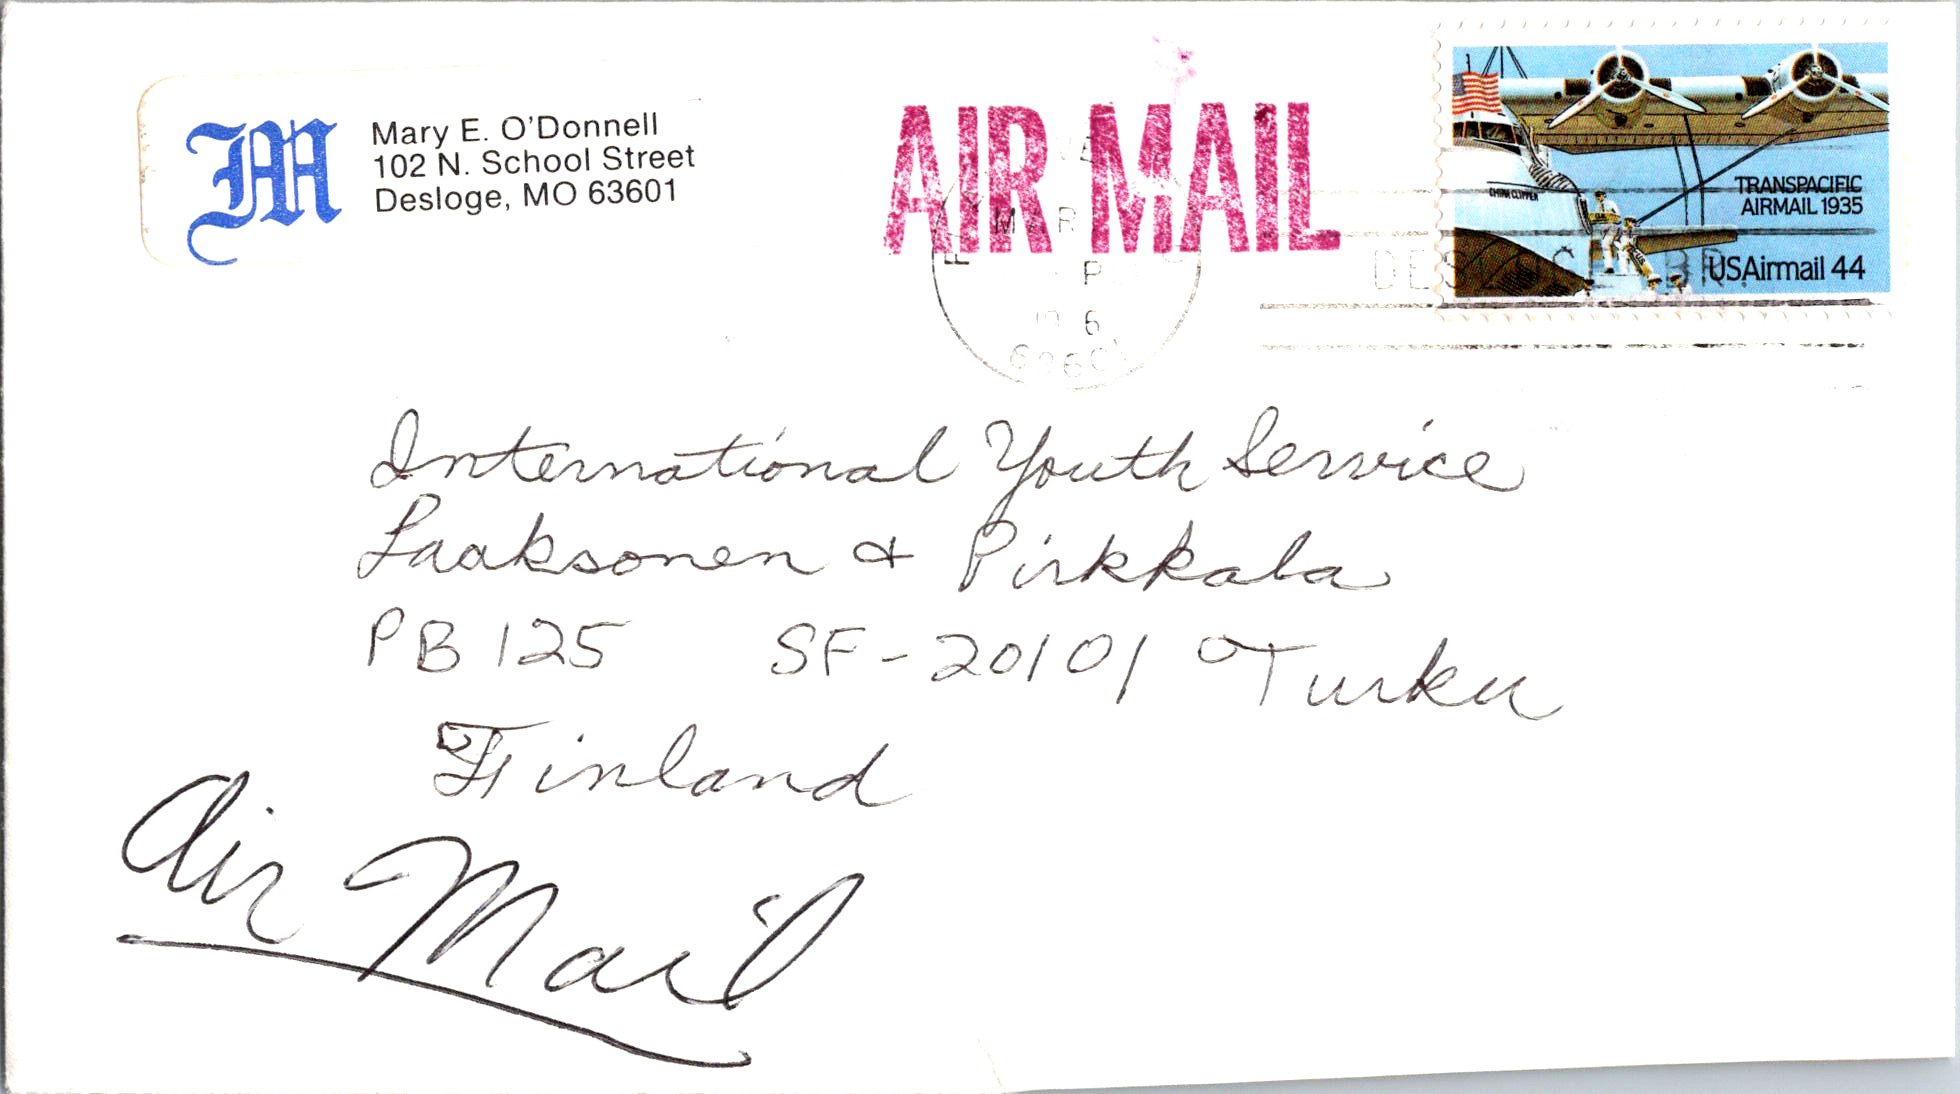 M
Mary E. O'Donnell
102 N. School Street
Desloge, MO 63601
AIR MAIL
MAR
P
6
DESLOGE BR.
CHINA CLIPPER
TRANSPACIFIC
AIRMAIL 1935
USAirmail 44
International Youth Service
Laaksonen & Pirkkala
PB 125 SF-20101 Turku
Finland
Air Mail